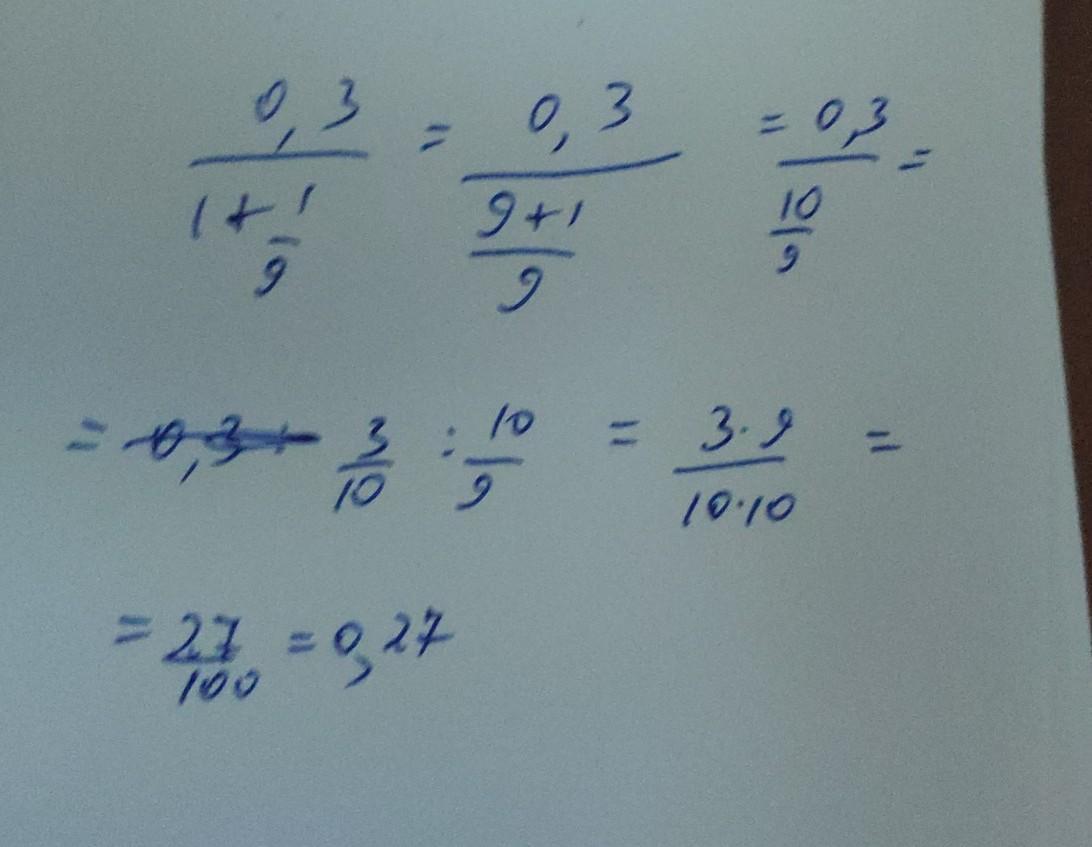 0,3 / (1 + 1/9) = 0,3 / ((9+1)/9) = 0,3 / (10/9) =
= 3/10 : 10/9 = (3·9)/(10·10) =
= 27/100 = 0,27